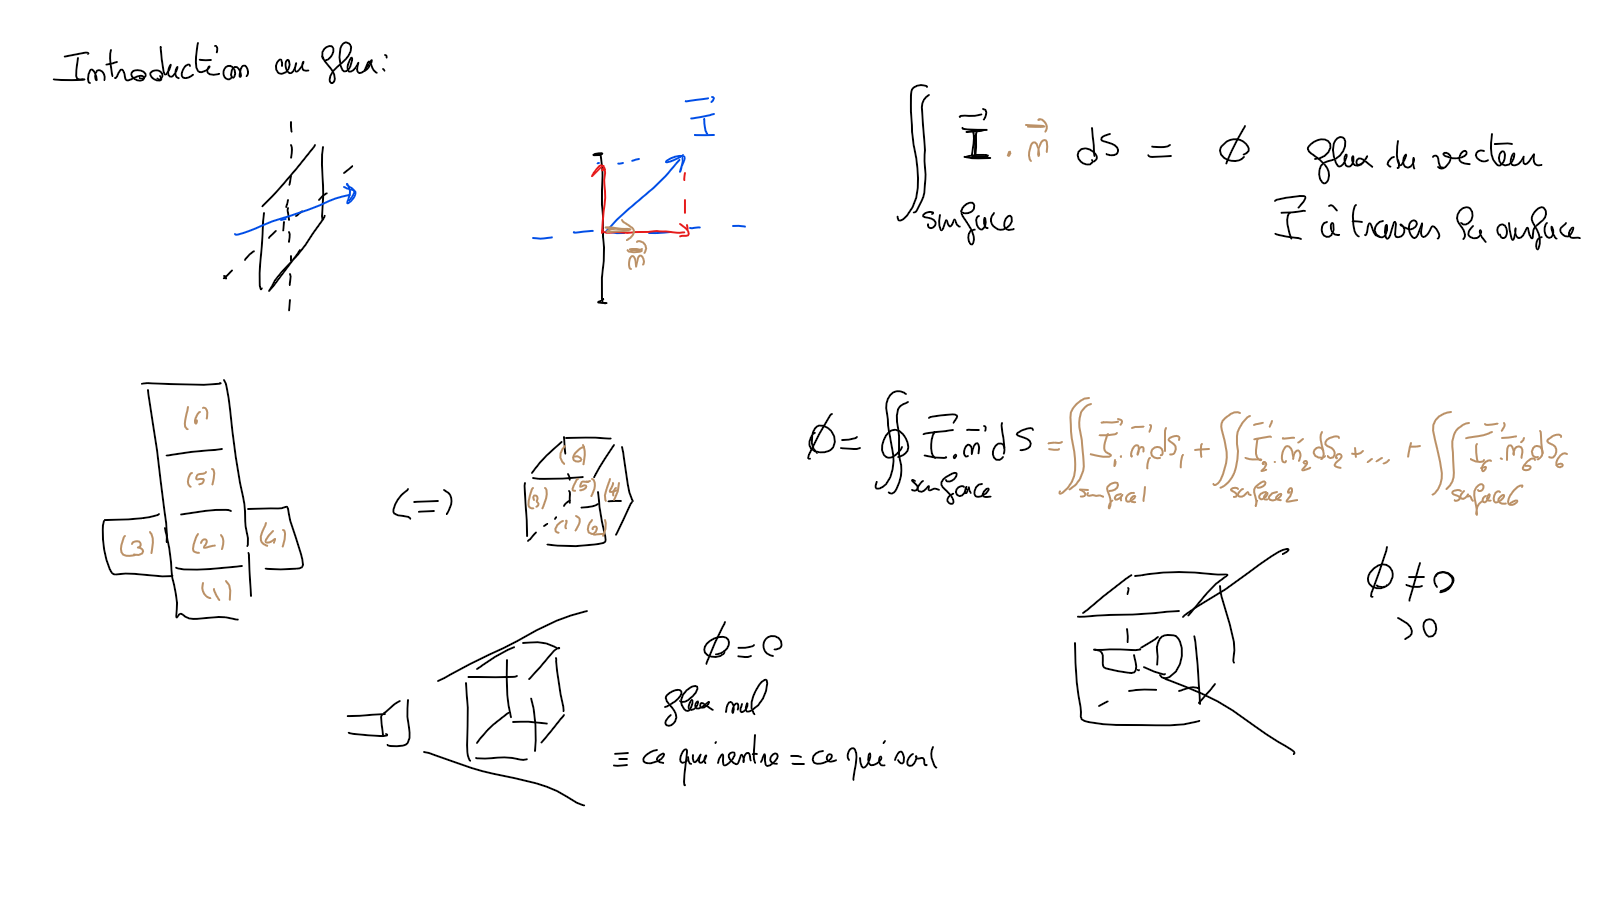 Introduction au flux:
I⃗
n⃗
∬surface I⃗ . n⃗ dS = ϕ flux du vecteur
I⃗ à travers la surface
(6)
(5)
(3) (2) (4)
(1)
(=)
(6)
(3) (5) (4)
(1) (2)
ϕ = ∯surface I⃗ . n⃗ dS = ∬surface1 I⃗₁ . n⃗₁ dS₁ + ∬surface2 I⃗₂ . n⃗₂ dS₂ + ... + ∬surface6 I⃗₆ . n⃗₆ dS₆
ϕ ≠ 0
> 0
ϕ = 0
flux nul
≡ ce qui rentre = ce qui sort